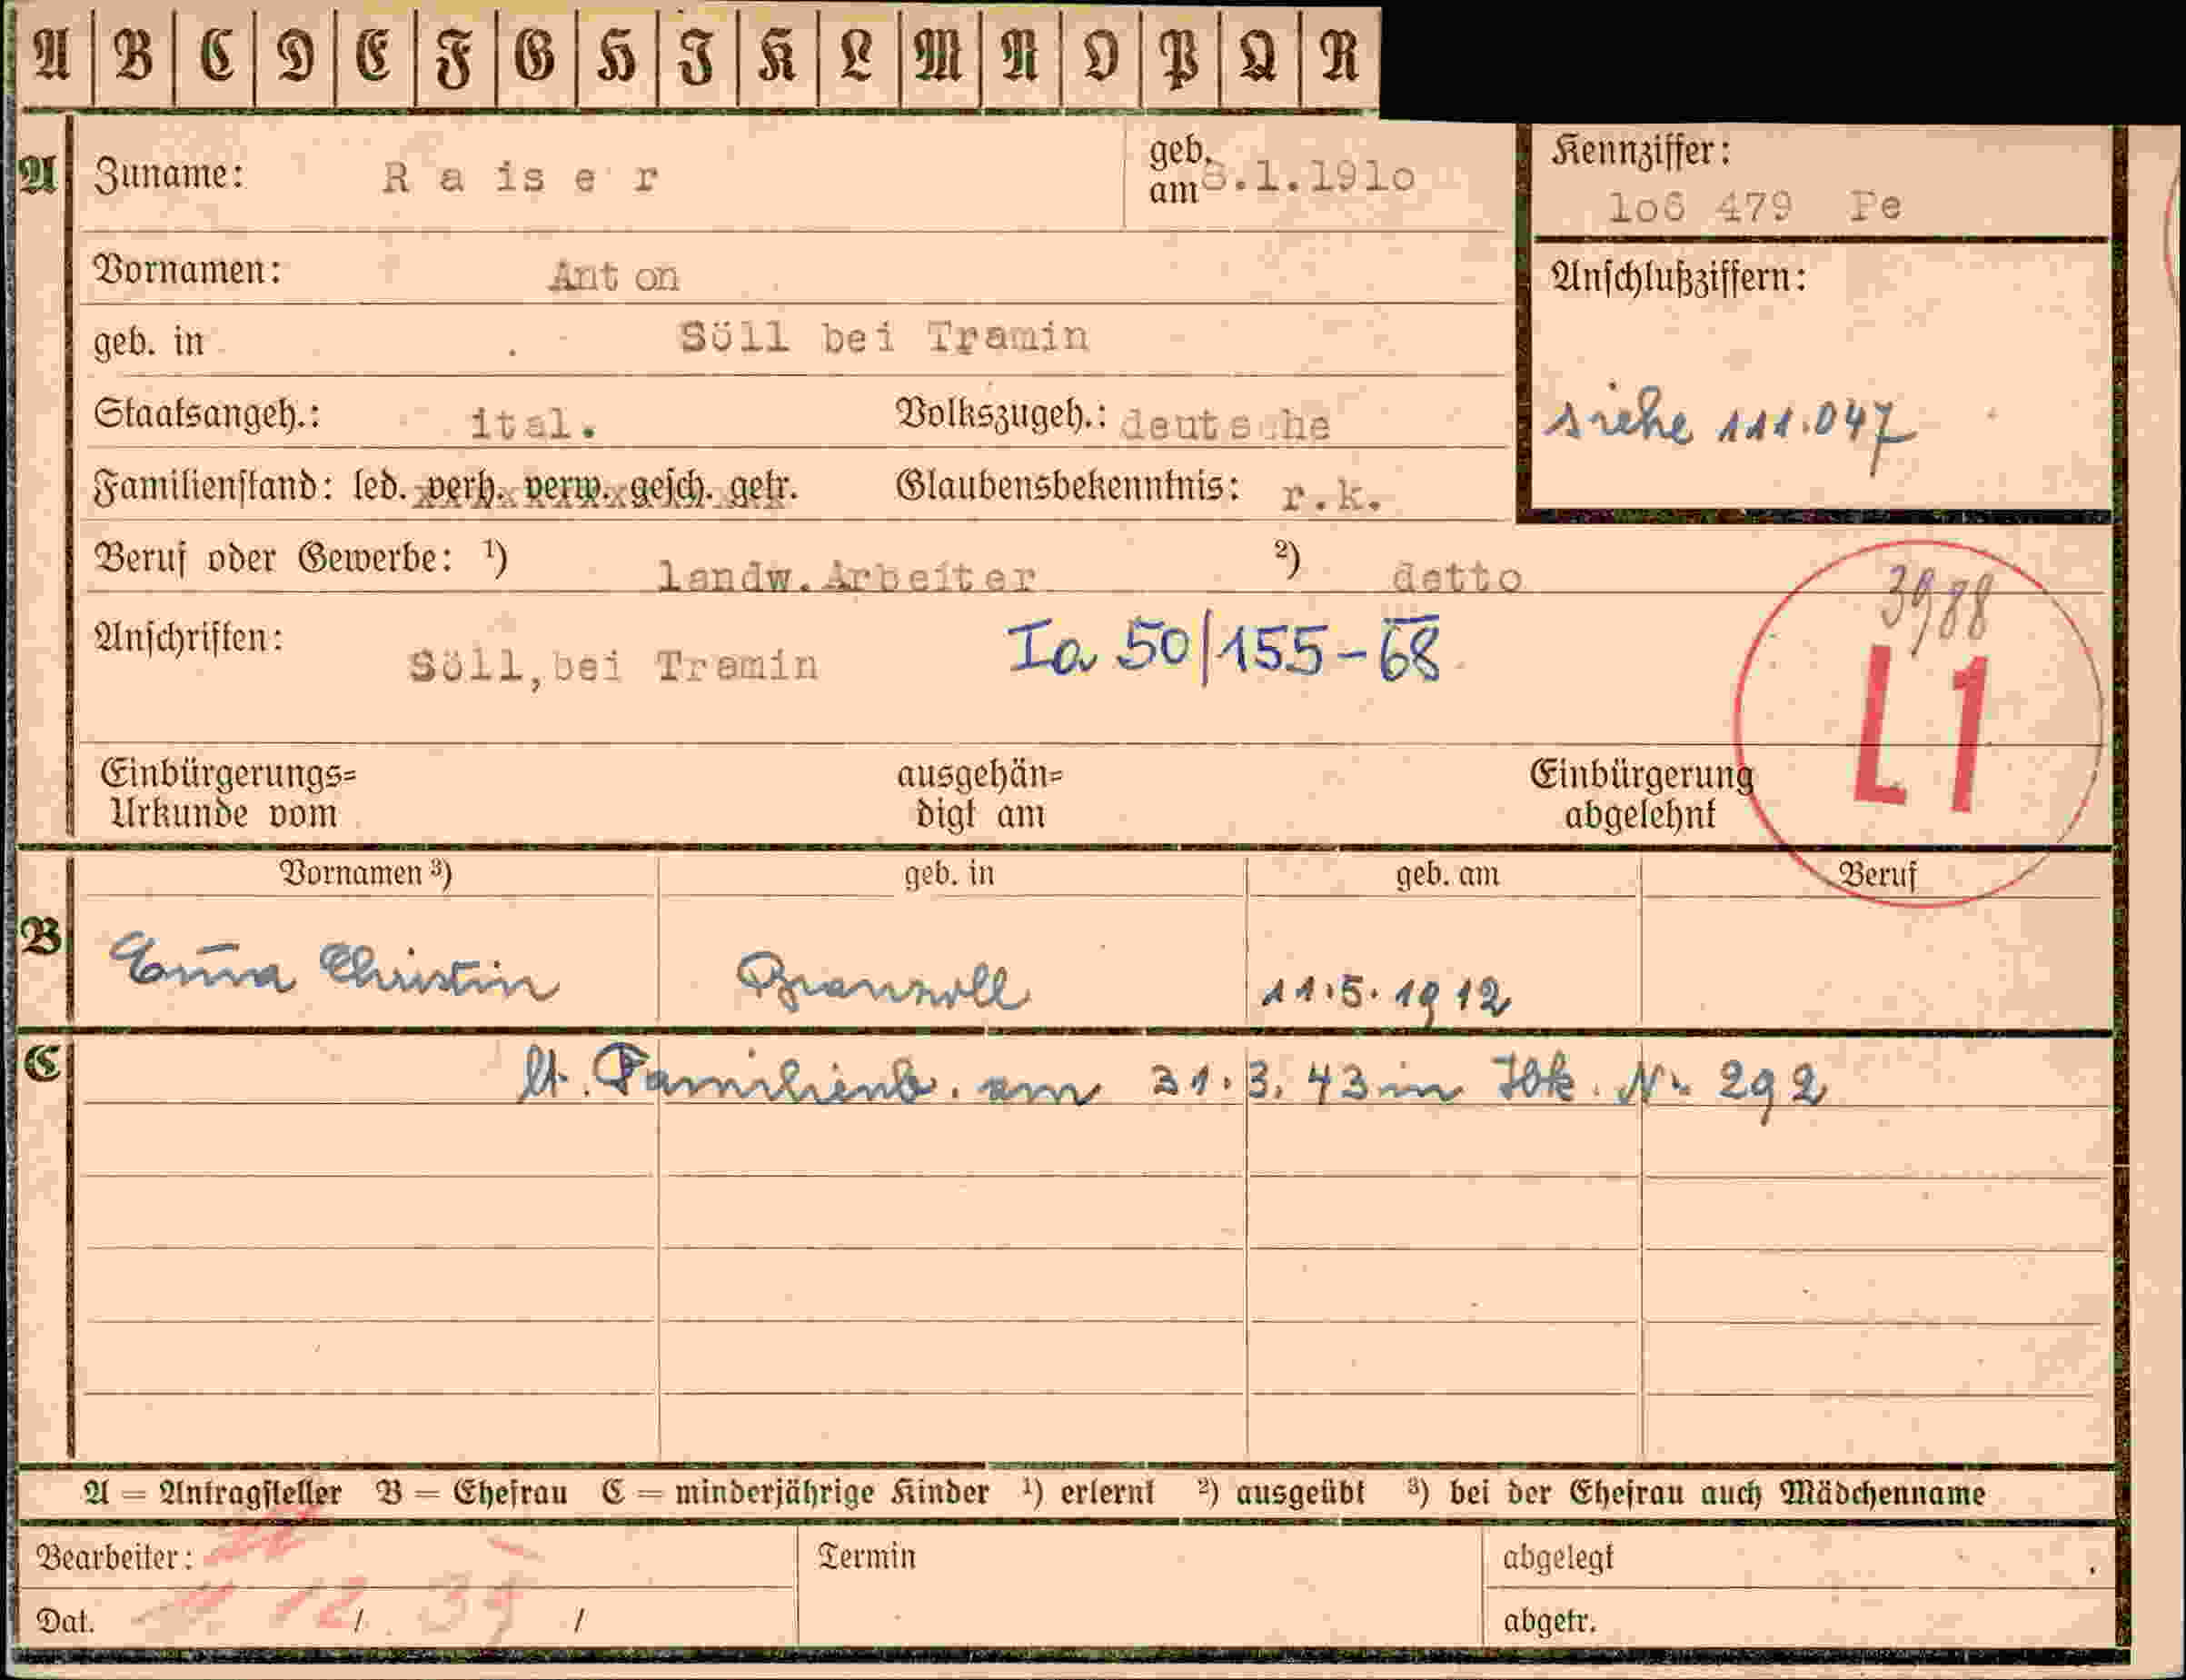 A B C D E F G H I K L M N O P Q R
A Zuname: Raiser geb. am 8.1.191o
Kennziffer:
1o6 479 Pe
Vornamen: Anton
Anschlußziffern:
geb. in Söll bei Tramin
Staatsangeh.: ital. Volkszugeh.: deutsche
siehe 111.047
Familienstand: led. verh. verw. gesch. getr. Glaubensbekenntnis: r.k.
Beruf oder Gewerbe: ¹) landw.Arbeiter ²) detto
3988
Anschriften: Söll,bei Tramin Ia 50/155-68
L1
Einbürgerungs= ausgehän= Einbürgerung
Urkunde vom digt am abgelehnt
Vornamen ³) geb. in geb. am Beruf
B Emma Christin Branzoll 11.5.1912
C lt. Familienb. am 31.3.43 in Ibk. Nr 292
A = Antragsteller B = Ehefrau C = minderjährige Kinder ¹) erlernt ²) ausgeübt ³) bei der Ehefrau auch Mädchenname
Bearbeiter: Termin abgelegt
Dat. 12 / 39 / abgetr.